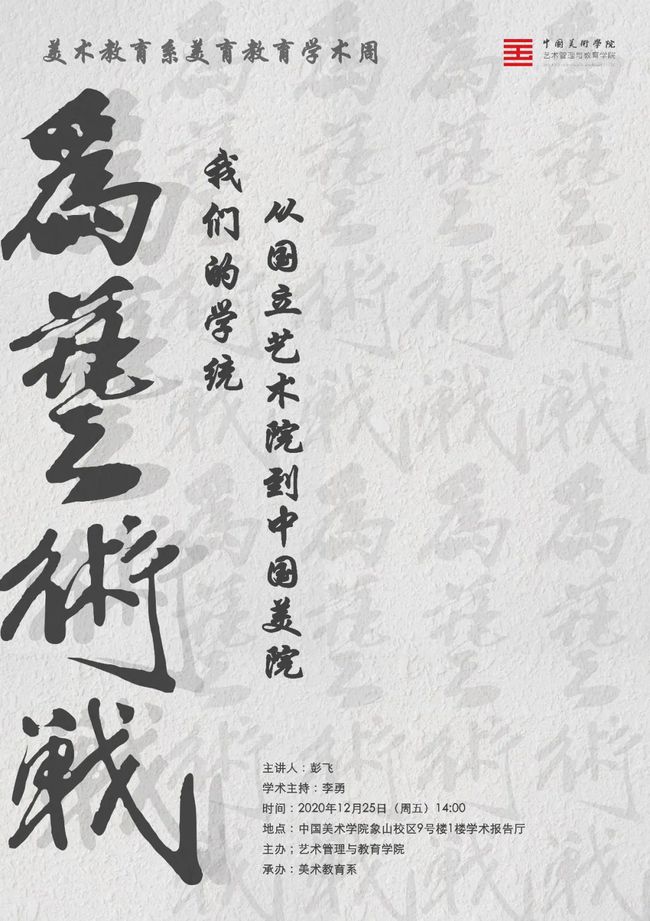 美术教育系美育教育学术周
中国美術学院
艺术管理与教育学院
為藝術戰
我们的学统
从国立艺术院到中国美院
主讲人：彭飞
学术主持：李勇
时间：2020年12月25日（周五）14:00
地点：中国美术学院象山校区9号楼1楼学术报告厅
主办；艺术管理与教育学院
承办：美术教育系